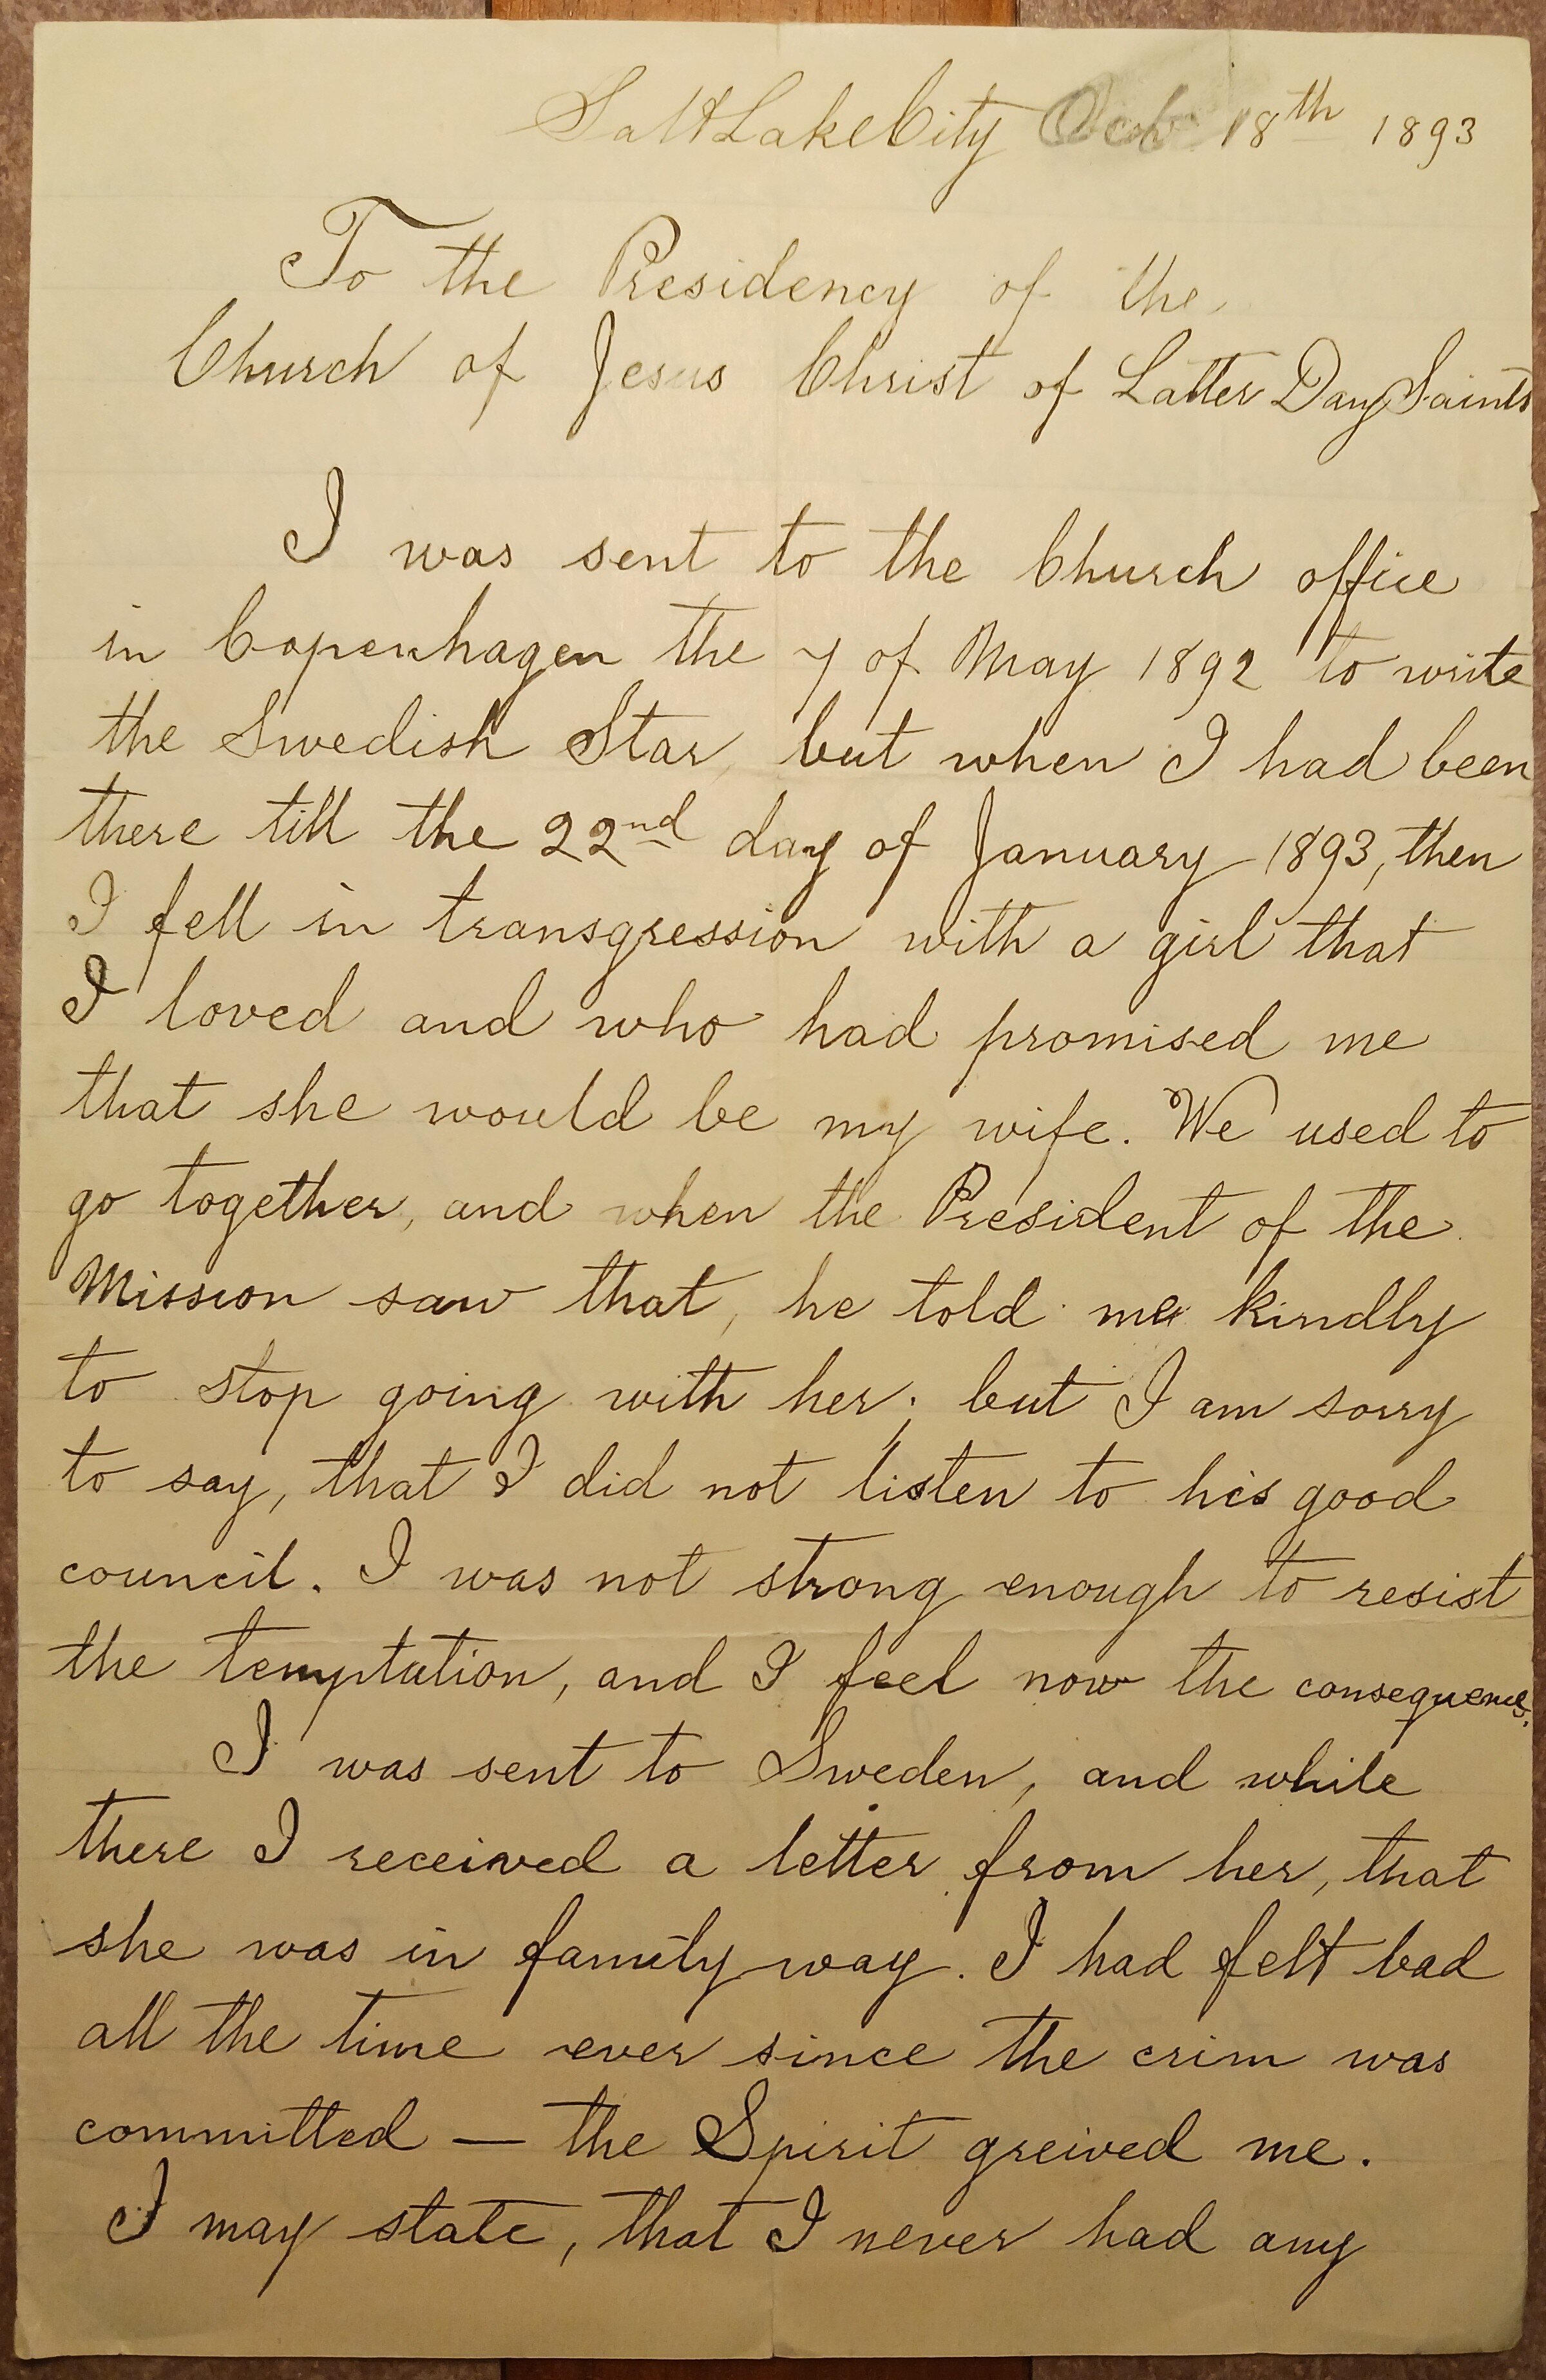 Salt Lake City Oct 18th 1893
To the Presidency of the
Church of Jesus Christ of Latter Day Saints
I was sent to the Church office
in Copenhagen the 7 of May 1892 to write
the Swedish Star, but when I had been
there till the 22nd day of January 1893, then
I fell in transgression with a girl that
I loved and who had promised me
that she would be my wife. We used to
go together, and when the President of the
Mission saw that, he told me kindly
to stop going with her; but I am sorry
to say, that I did not listen to his good
council. I was not strong enough to resist
the temptation, and I feel now the consequences.
I was sent to Sweden, and while
there I received a letter from her, that
she was in family way. I had felt bad
all the time ever since the crim was
committed — the Spirit greived me.
I may state, that I never had any